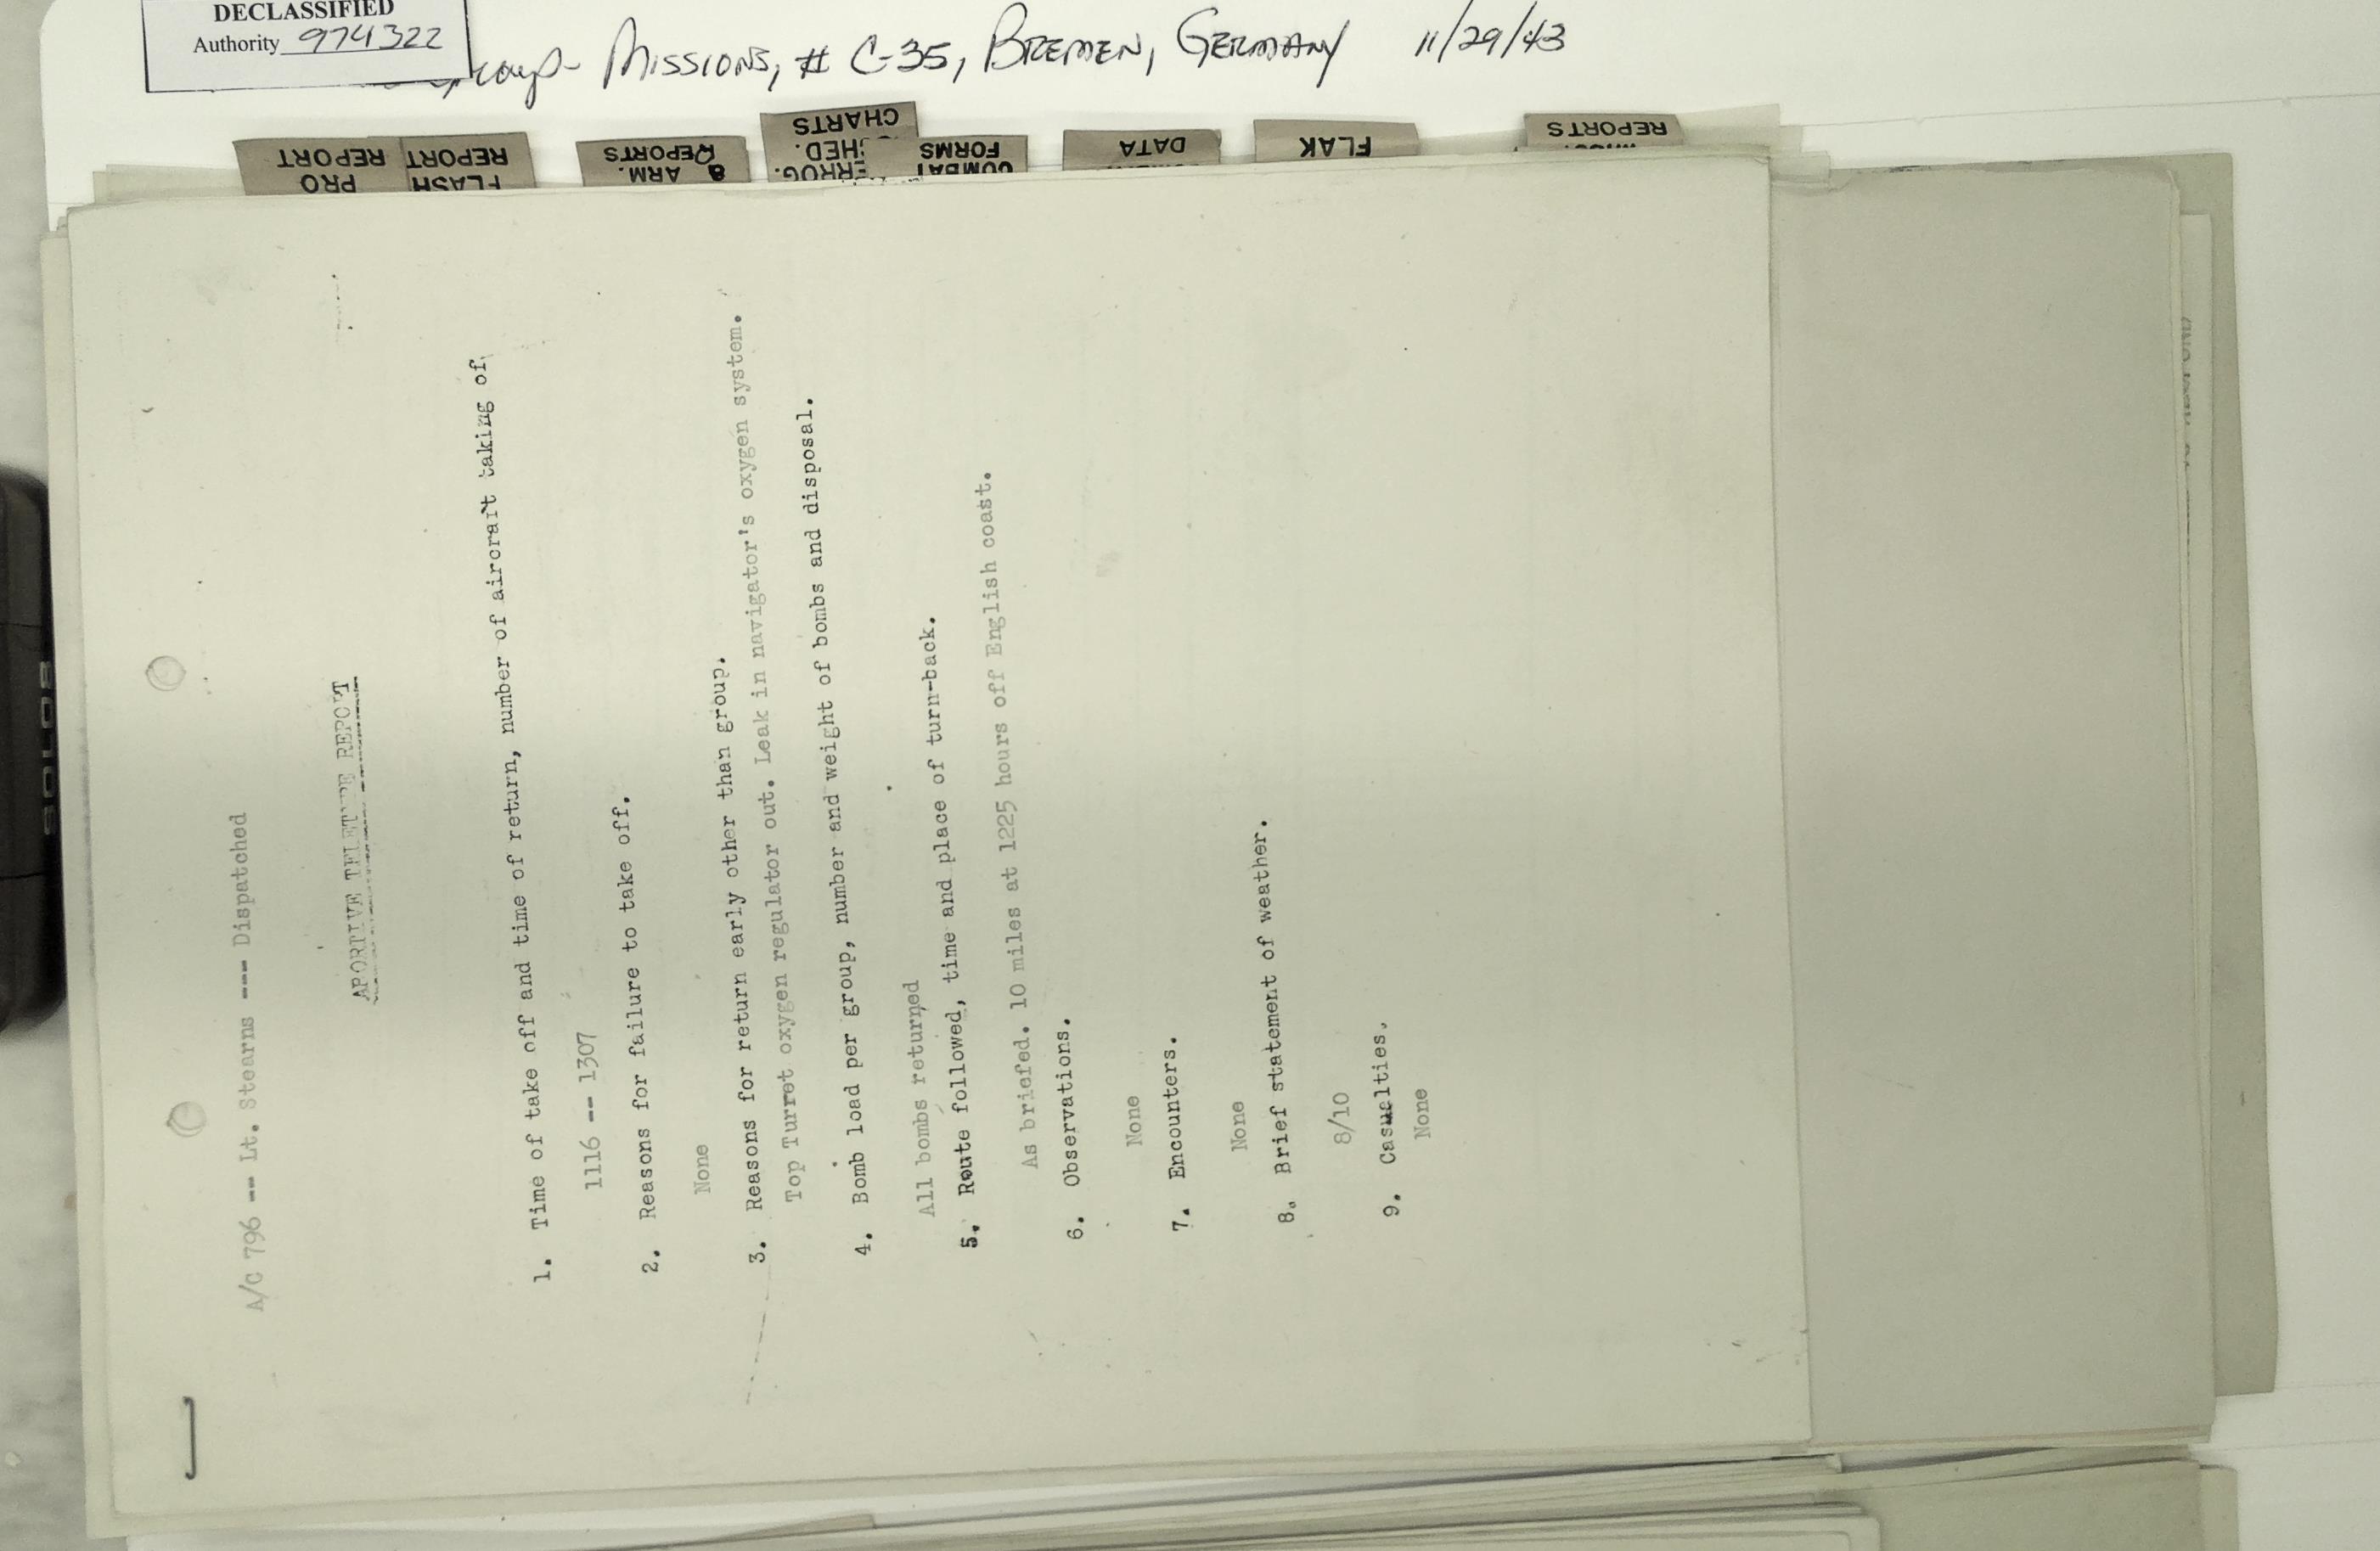 DECLASSIFIED
Authority 974322
Group- Missions, # C-35, Bremen, Germany 11/29/43
PRO
REPORT
FLASH
REPORT
ARM.
REPORTS
CHARTS
COMBAT
FORMS
DATA
FLAK
REPORTS
A/C 796 -- Lt. Stearns --- Dispatched
APORTIVE TELETYPE REPORT
1. Time of take off and time of return, number of aircraft taking of
1116 -- 1307
2. Reasons for failure to take off.
None
3. Reasons for return early other than group.
Top Turret oxygen regulator out. Leak in navigator's oxygen system.
4. Bomb load per group, number and weight of bombs and disposal.
All bombs returned
5. Route followed, time and place of turn-back.
As briefed. 10 miles at 1225 hours off English coast.
6. Observations.
None
7. Encounters.
None
8. Brief statement of weather.
8/10
9. Casualties.
None